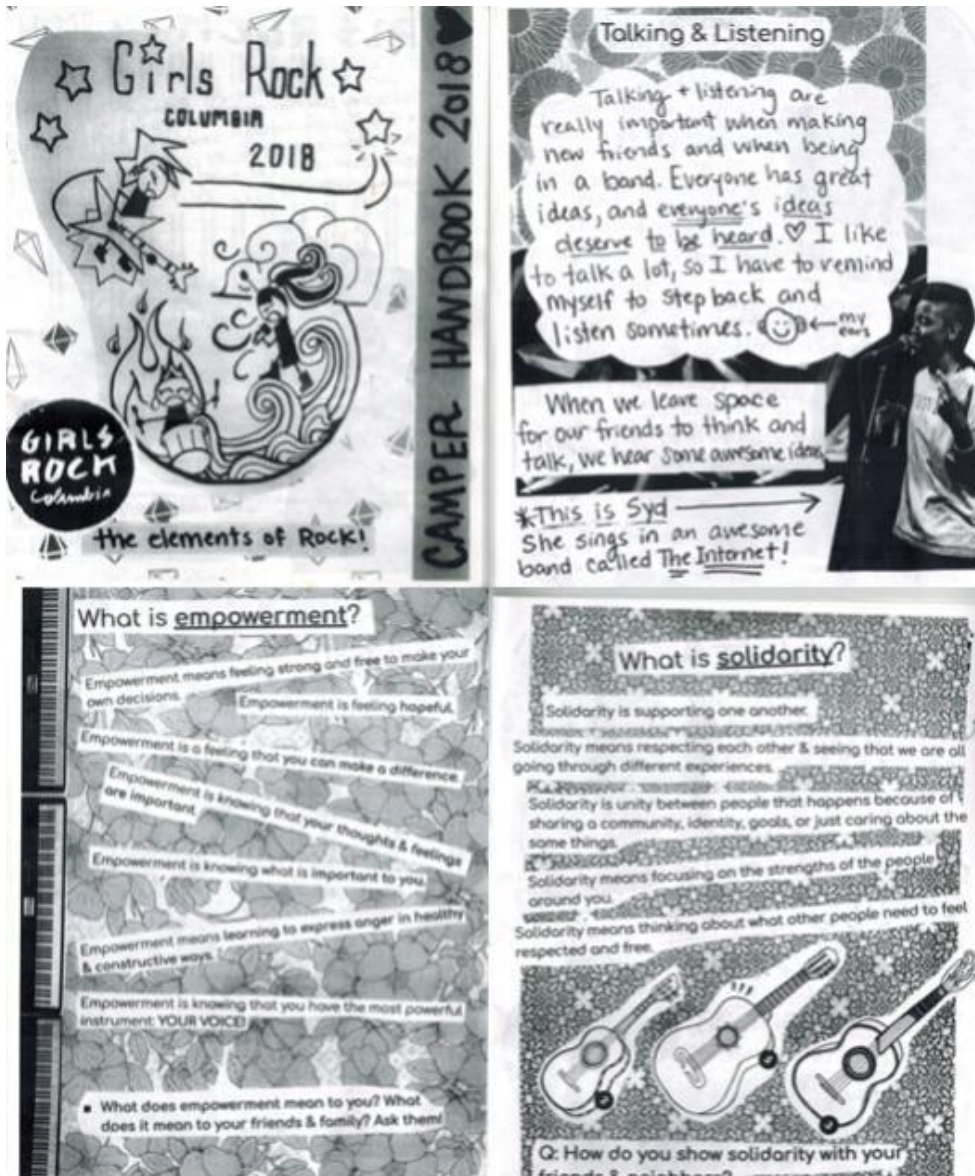 Girls Rock
COLUMBIA
2018
GIRLS
ROCK
Columbia
the elements of Rock!
CAMPER HANDBOOK 2018
Talking & Listening
Talking + listening are
really important when making
new friends and when being
in a band. Everyone has great
ideas, and everyone's ideas
deserve to be heard.♡ I like
to talk a lot, so I have to remind
myself to step back and
listen sometimes.
my
ears
When we leave space
for our friends to think and
talk, we hear some awesome ideas
*This is Syd
She sings in an awesome
band called The Internet!
What is empowerment?
Empowerment means feeling strong and free to make your
own decisions.
Empowerment is feeling hopeful.
Empowerment is a feeling that you can make a difference.
Empowerment is knowing that your thoughts & feelings
are important.
Empowerment is knowing what is important to you.
Empowerment means learning to express anger in healthy
& constructive ways.
Empowerment is knowing that you have the most powerful
instrument: YOUR VOICE!
▪ What does empowerment mean to you? What
does it mean to your friends & family? Ask them!
What is solidarity?
Solidarity is supporting one another.
Solidarity means respecting each other & seeing that we are all
going through different experiences.
Solidarity is unity between people that happens because of
sharing a community, identity, goals, or just caring about the
same things.
Solidarity means focusing on the strengths of the people
around you.
Solidarity means thinking about what other people need to feel
respected and free.
Q: How do you show solidarity with your
friends & neighbors?